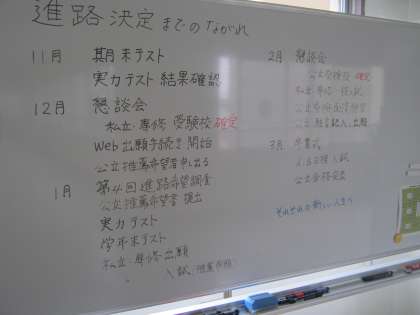 進路決定までのながれ
11月 期末テスト
実力テスト 結果確認
12月 懇談会
私立・専修 受験校確定
Web出願手続き開始
公立推薦希望者申し出る
1月 第4回進路希望調査
公立推薦希望書 提出
実力テスト
学年末テスト
私立・専修 出願
2月 懇談会
公立受検校 確定
公立 願書記入、出願
3月 卒業式
公立合格発表
それぞれの新しい人生へ